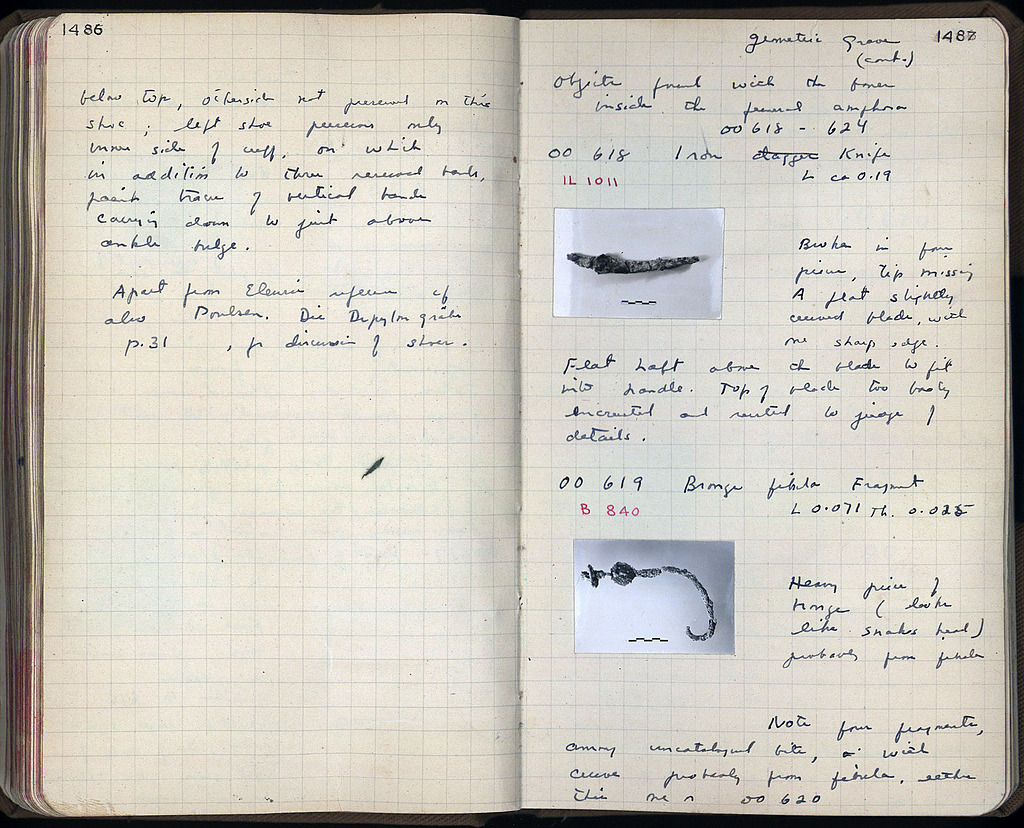 1486
below top, otherside not preserved on this
shoe; left shoe preserves only
inner side of cuff, on which
in addition to three reserved bands,
faint traces of vertical bands
carrying down to just above
ankle bulge.
Apart from Eleusis reference cf
also Poulsen. Die Dipylongräber
p.31 , for discussion of shoes.
1487
Geometric Grave
(cont.)
Objects found with the bones
inside the funeral amphora
OO 618 - 624
OO 618 Iron dagger Knife
L ca 0.19
IL 1011
Broken in four
pieces, tip missing
A flat slightly
curved blade, with
one sharp edge.
Flat haft above the blade to fit
into handle. Top of blade too badly
encrusted and rusted to judge of
details.
OO 619 Bronze fibula Fragment
B 840
L 0.071 Th. 0.025
Heavy piece of
bronze (looks
like snakes head)
probably from fibula
Note four fragments,
among uncatalogued bits, with
curve probably from fibula, either
this one or OO 620